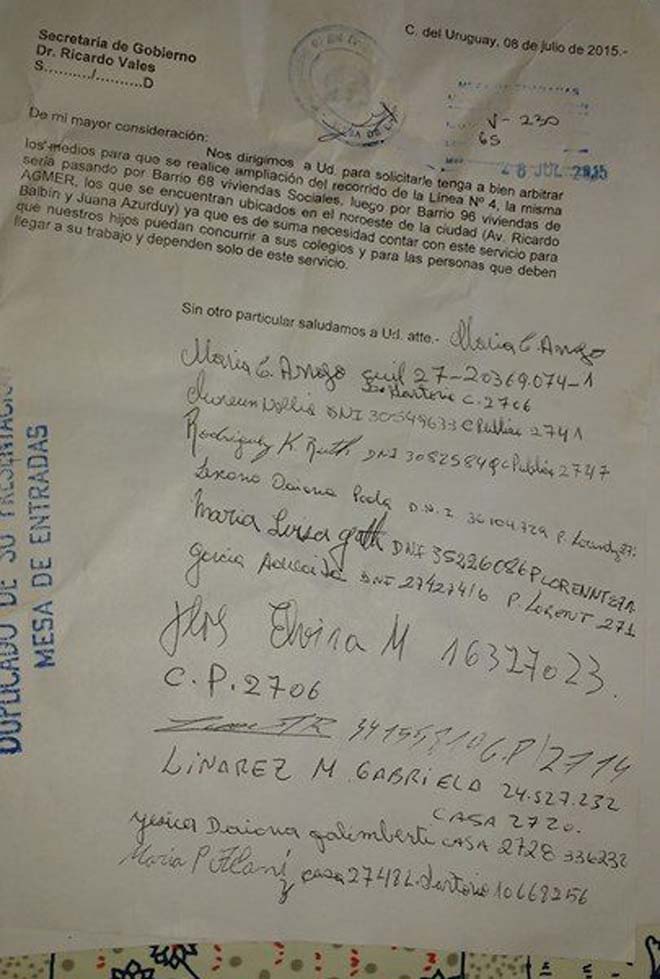 C. del Uruguay, 08 de julio de 2015.-
Secretaría de Gobierno
Dr. Ricardo Vales
S........../..........D
V-230
65
8 JUL 2015
De mi mayor consideración:
Nos dirigimos a Ud. para solicitarle tenga a bien arbitrar
los medios para que se realice ampliación del recorrido de la Línea Nº 4, la misma
sería pasando por Barrio 68 viviendas Sociales, luego por Barrio 96 viviendas de
AGMER, los que se encuentran ubicados en el noroeste de la ciudad (Av. Ricardo
Balbín y Juana Azurduy) ya que es de suma necesidad contar con este servicio para
que nuestros hijos puedan concurrir a sus colegios y para las personas que deben
llegar a su trabajo y dependen solo de este servicio.
Sin otro particular saludamos a Ud. atte.-
Maria C. Arrojo
Maria C. Arrojo cuil 27-20369.074-1
C. 2706
DNI 30549633 C 2741
Rodriguez K. Ruth DNI 3082584 2747
Daiana Paola D.N.I. 36104729 P.
Maria Luisa DNI 35226086 P LORENNT 271
Garcia Adelaida DNI 27427416 P. LORENT 271
Elvira M 16327023.
C.P. 2706
C.P 2714
LiNAREZ M. GABRiELA 24.527.232
CASA 2720.
Yesica Daiana galimberti CASA 2728 336232
Maria P casa 2748 L. Sartorio 10668256
DUPLICADO DE SU PRESENTACION
MESA DE ENTRADAS